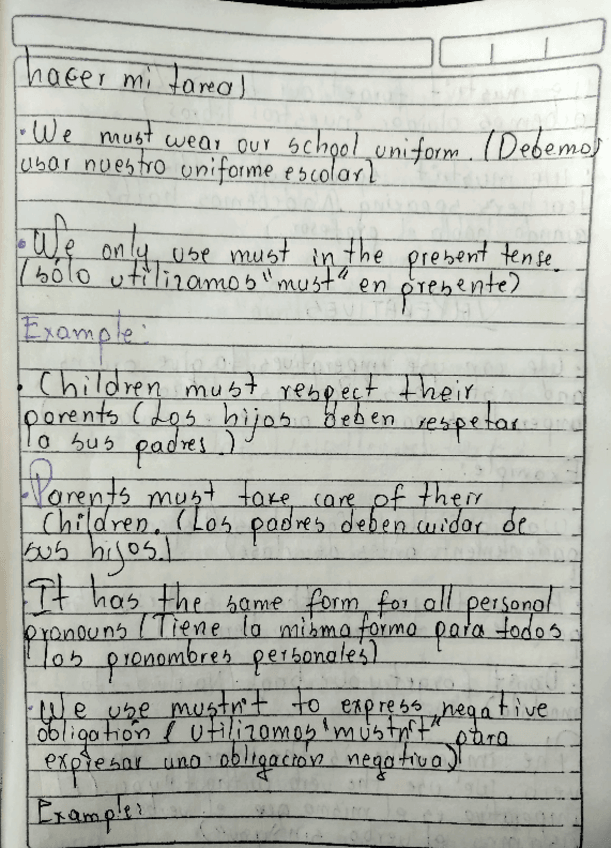 hacer mi tarea)
• We must wear our school uniform. (Debemos
usar nuestro uniforme escolar)
• We only use must in the present tense.
(sólo utilizamos "must" en presente)
Example:
• Children must respect their
parents (Los hijos deben respetar
a sus padres.)
• Parents must take care of their
Children. (Los padres deben cuidar de
sus hijos.)
• It has the same form for all personal
pronouns (Tiene la misma forma para todos
los pronombres personales)
• We use mustn't to express negative
obligation ( utilizamos "mustn't" para
expresar una obligación negativa)
Example: